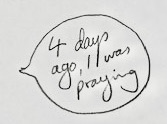 4 days
ago, I was
praying